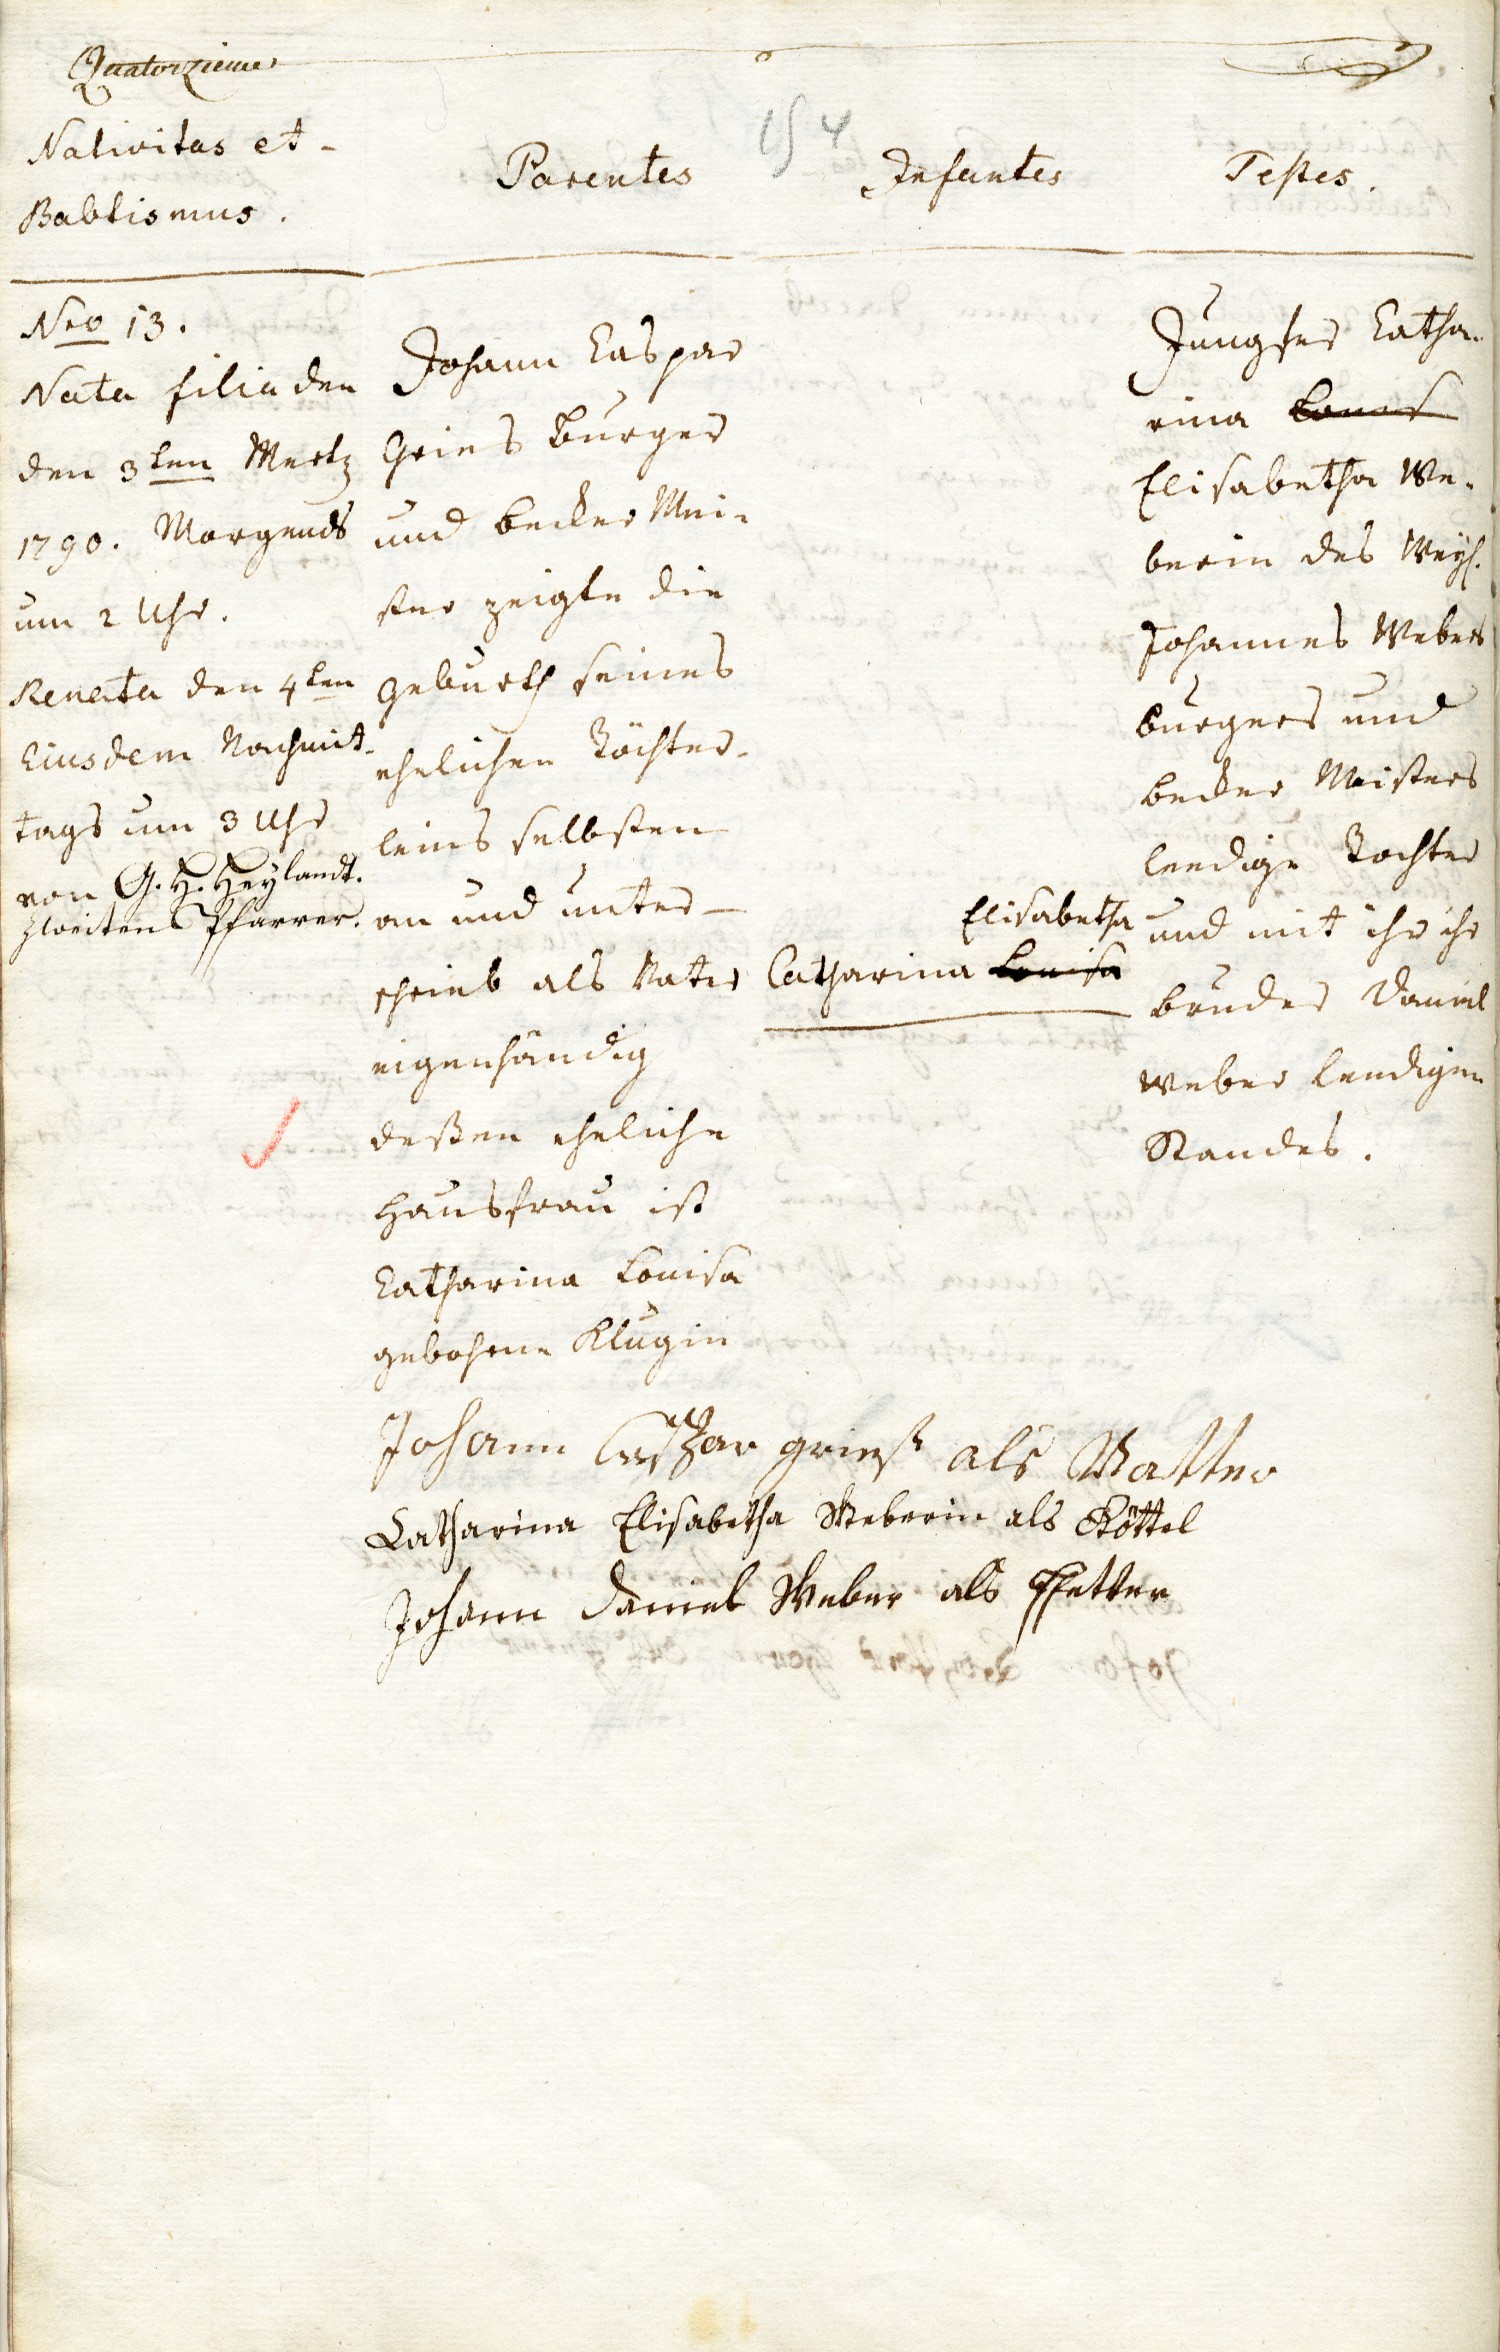 Quatorzieme
154
Nativitas et
Babtismus.
Parentes
Infantes
Testes.
Nro 13.
Nata filia den
den 3ten Mertz
1790. Morgends
um 2 Uhr.
Renata den 4ten
Eiusdem Nachmit-
tags um 3 Uhr
von G. H. Heylandt.
Zweitens Pfarrer.
Johann Caspar
Gries Burger
und becker Mei-
ster zeigte die
geburth seines
ehelichen Töchter-
leins selbsten
an und unter-
schrieb als Vater
eigenhändig
deßen eheliche
Hausfrau ist
Catharina Louisa
gebohrne Klugin
Elisabetha
Catharina Louisa
Jungfer Catha-
rina
Elisabetha We-
berin des Weyl.
Johannes Webers
burgers und
becker Meisters
leedige Tochter
und mit ihr ihr
bruder Daniel
Weber leedigen
Standes.
Johann Casbar grieß als Vatter
Catharina Elisabetha Weberin als Göttel
Johann Daniel Weber als Pfetter